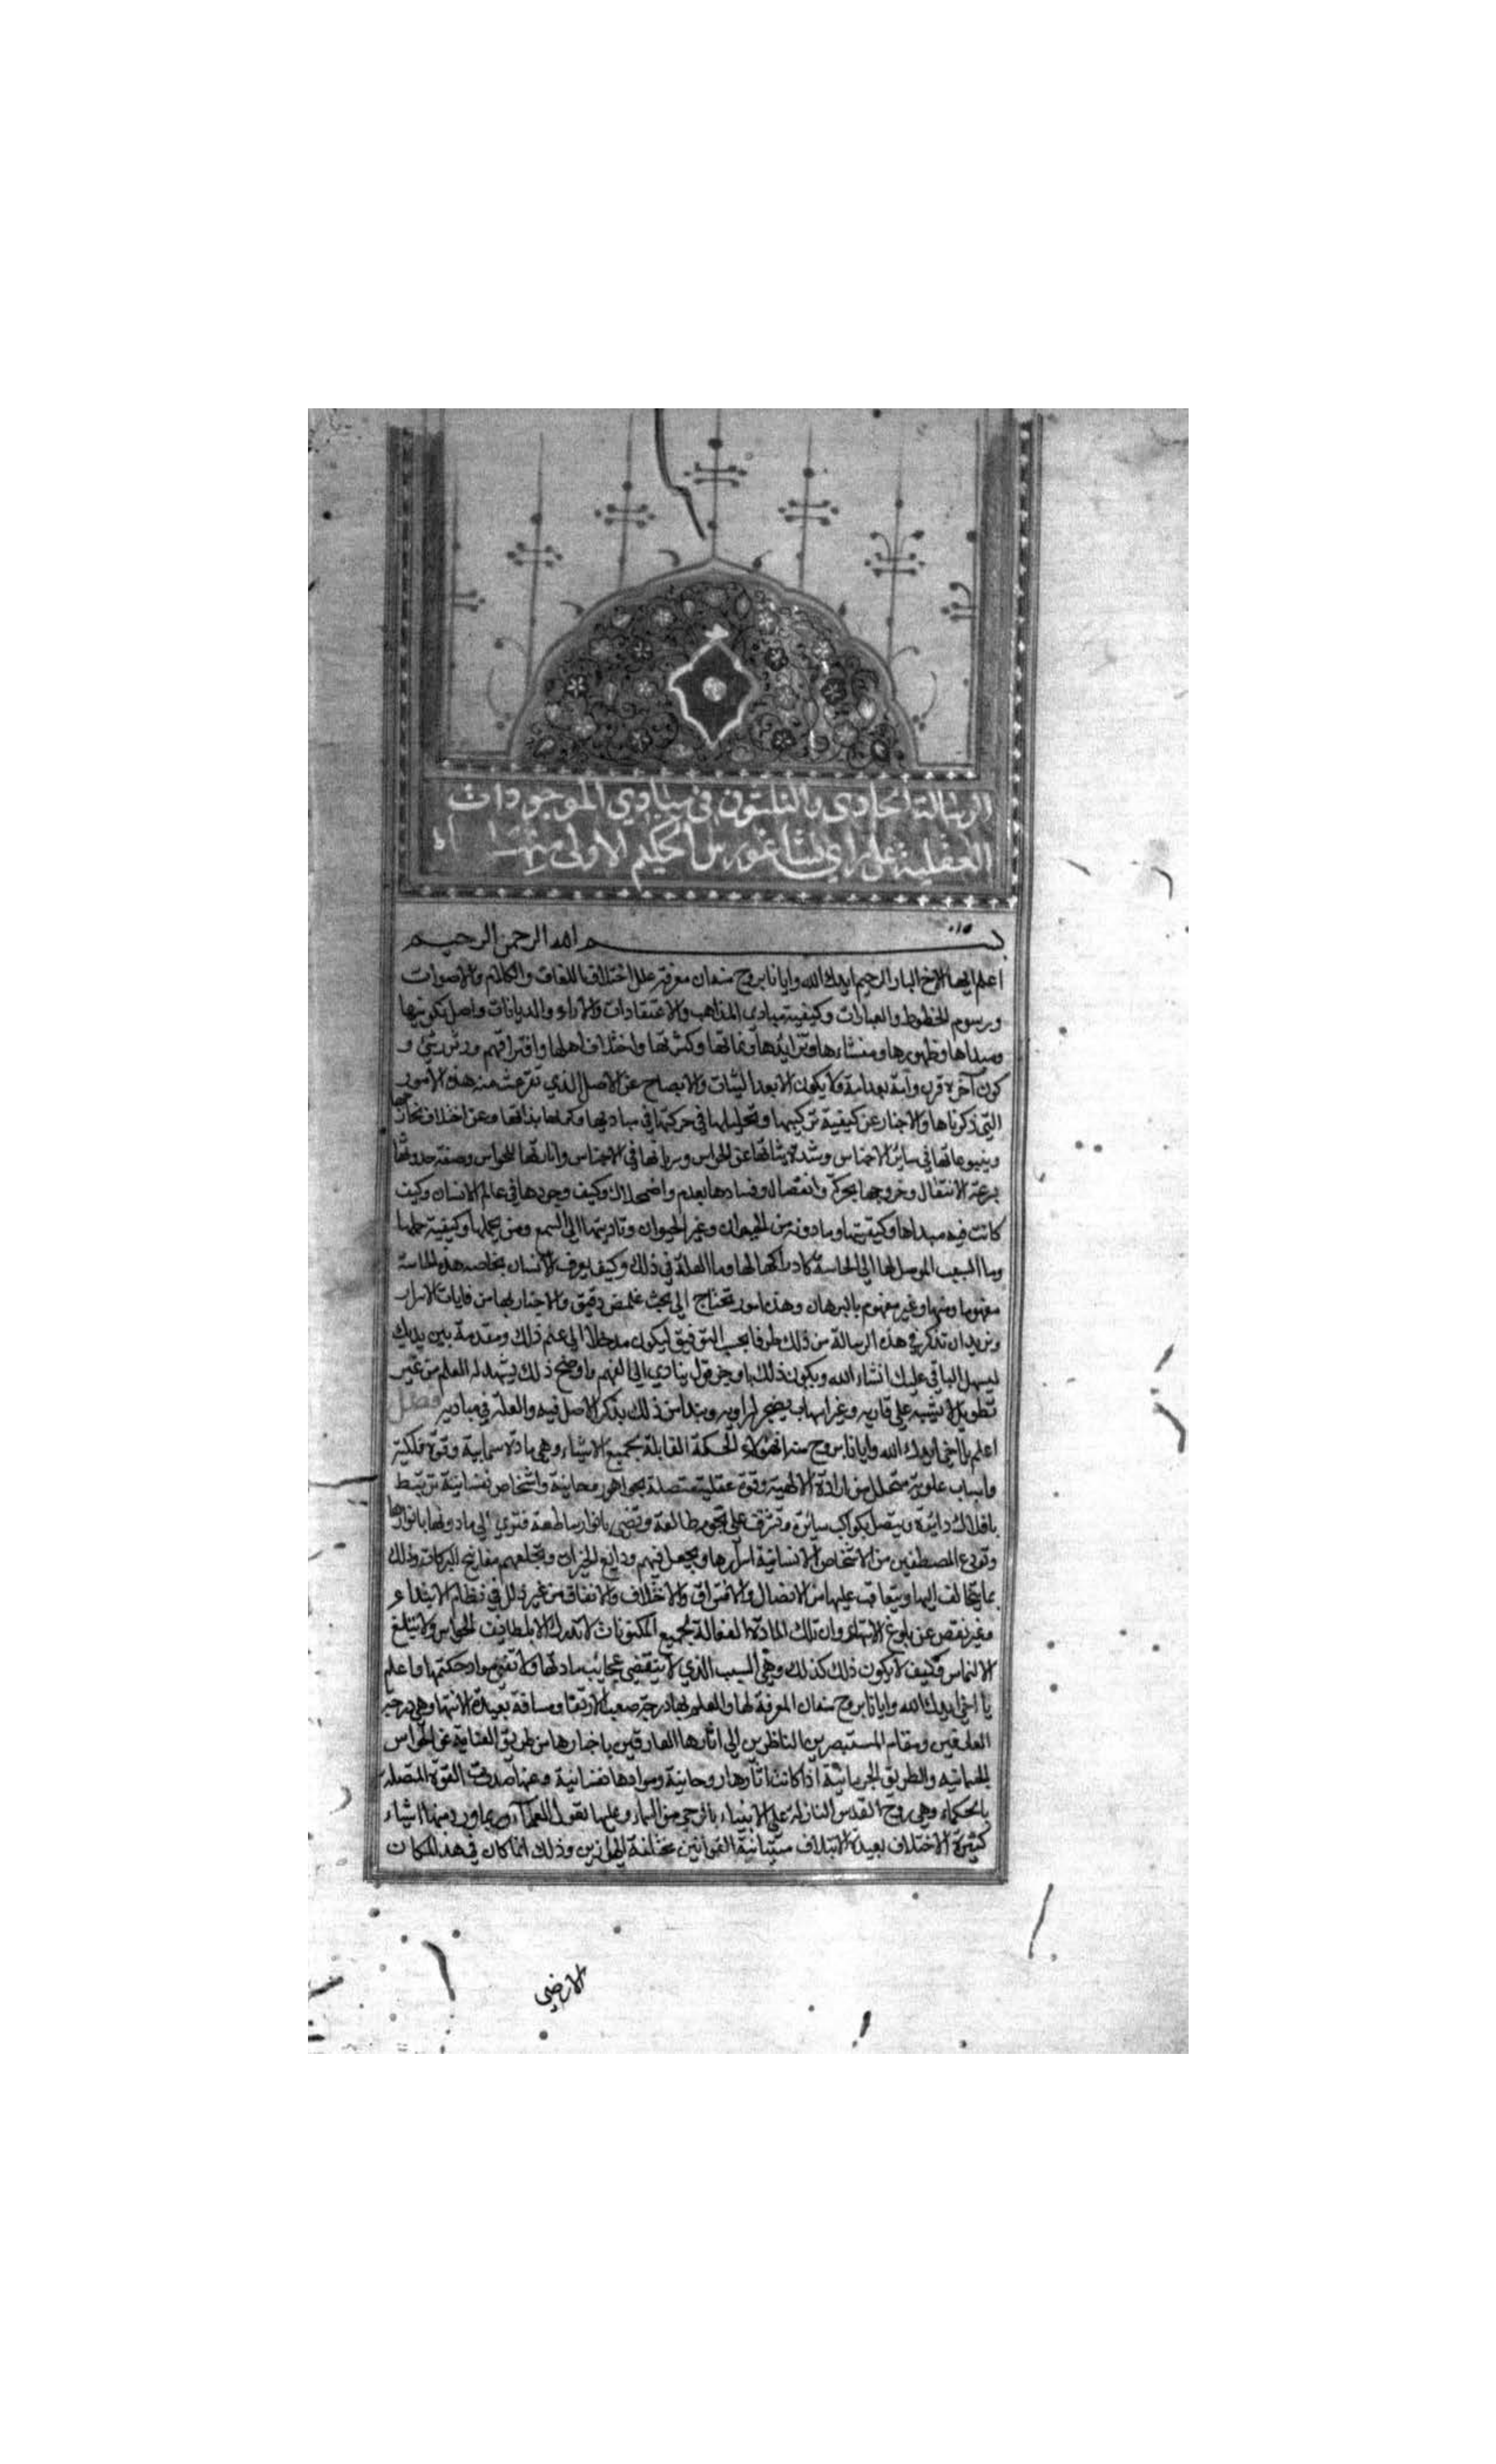 الرسالة الحادي والثلثون في مبادي الموجودات
العقلية على راي فيثاغورس الحكيم الاولى منها
بسم الله الرحمن الرحيم
اعلم ايها الاخ البار الرحيم ايدك الله وايانا بروح منه ان معرفة علل اختلاف اللغات والكلام والاصوات
ورسوم الخطوط والعبارات وكيفية مبادي المذاهب والاعتقادات والاراء والديانات واصل تكوينها
ومبداها وظهورها ومنشاءها وتزايدها ونمائها وكثرتها واختلاف اهلها وافتراقهم ودثور شئ و
كون آخر في قرن وامة بعد امة لا يكون الا بعد البيان والايضاح عن الاصل الذي تفرعت منه هذه الامور
التي ذكرناها والاخبار عن كيفية تركيبها وتحليلها في حركتها في مباديها وكمالها بذاتها وعن اختلاف مخارجها
وينبوعاتها في ساير الاجناس وشدة وسريانها في الاجناس واثارتها للحواس وصفة حدوثها
بسرعة الانتقال وخروجها بحركة وانفصال وفسادها بعدم واضمحلال وكيف وجودها في عالم الانسان وكيف
كانت فيه مبداها وكيفيتها وما دونه من الحيوان وغير الحيوان وتاديتها الى السمع ومن يحملها وكيفية حملها
وما السبب الموصل لها الى الحاسة كادراكها لها وما العلة في ذلك وكيف يعرف الانسان بخاصه هذه الحاسة
مفهوما ومنها وغير مفهوم بالبرهان وهذه امور تحتاج الى بحث غامض دقيق والاخبار بها من غايات الاسرار
ونريد ان نذكر في هذه الرسالة من ذلك طرفا بحسب التوفيق ليكون مدخلا الى علم ذلك ومقدمة بين يديك
ليسهل الباقي عليك انشاء الله ويكون ذلك باوجز قول ينادي الى الفهم واوضح ذلك يشهد له العلم من غير
تطويل لا يشبه على قاريه وغير اسهاب يضجر لراويه ونبدا من ذلك بذكر الاصل فيه والعلة في مباديه فصل
اعلم يا اخي ايدك الله وايانا بروح منه ان هيولاء الحكمة القابلة بجميع الاشياء وهي مادة سمايية وقوة فلكية
واسباب علوية متحلل من ارادة الالهية وقوة عقلية متصلة بجواهر واشخاص نفسانية ترتبط
بافلاك دائرة وتتصل بكواكب سائرة وتشرف على نجوم طالعة وتضي بانوار ساطعة فتوي الى ما دونها بانوارها
وتودع المصطفين من الاشخاص الانسانية اسرارها ويجعل فيهم ودايع الخيرات ويجعلهم مفاتيح البركات وذلك
بما يتخالف اليها ويتعاقب عليها من الاتصال والافتراق والاختلاف والاتفاق من غير ذلل في نظام الابتداء
وغير نقص عن بلوغ الانتهاء وان تلك المادة الفعالة لجميع المكنونات لا تدرك الا بلطائف الحواس ولا يبلغ
الالتماس وكيف لا يكون ذلك كذلك وهي السبب الذي لا ينقضي عجائب مادتها ولا تفنى مواد حكمتها واعلم
يا اخي ايدك الله وايانا بروح منه ان المعرفة لها والعلم بها درجة صعبة الارتقا ومسافة بعيدة الانتها وهي درجة
العارفين ومقام المستبصرين الناظرين الى اثارها العارفين باخبارها من طريق عن الحواس
الجسمانيه والطريق الجرمانية اذا كانت اثارها روحانية وموادها نفسانية وعنها صدرت القوة المتصلة
بالحكماء وهي روح القدس النازلة على الانبياء بالوحي من السماء وعليها تقول العلماء وبما ورد منها اشياء
كثيرة الاختلاف بعيدة الايتلاف متباينة القوانين مختلفة الموازين وذلك انما كان في هذا المكان
الارضي